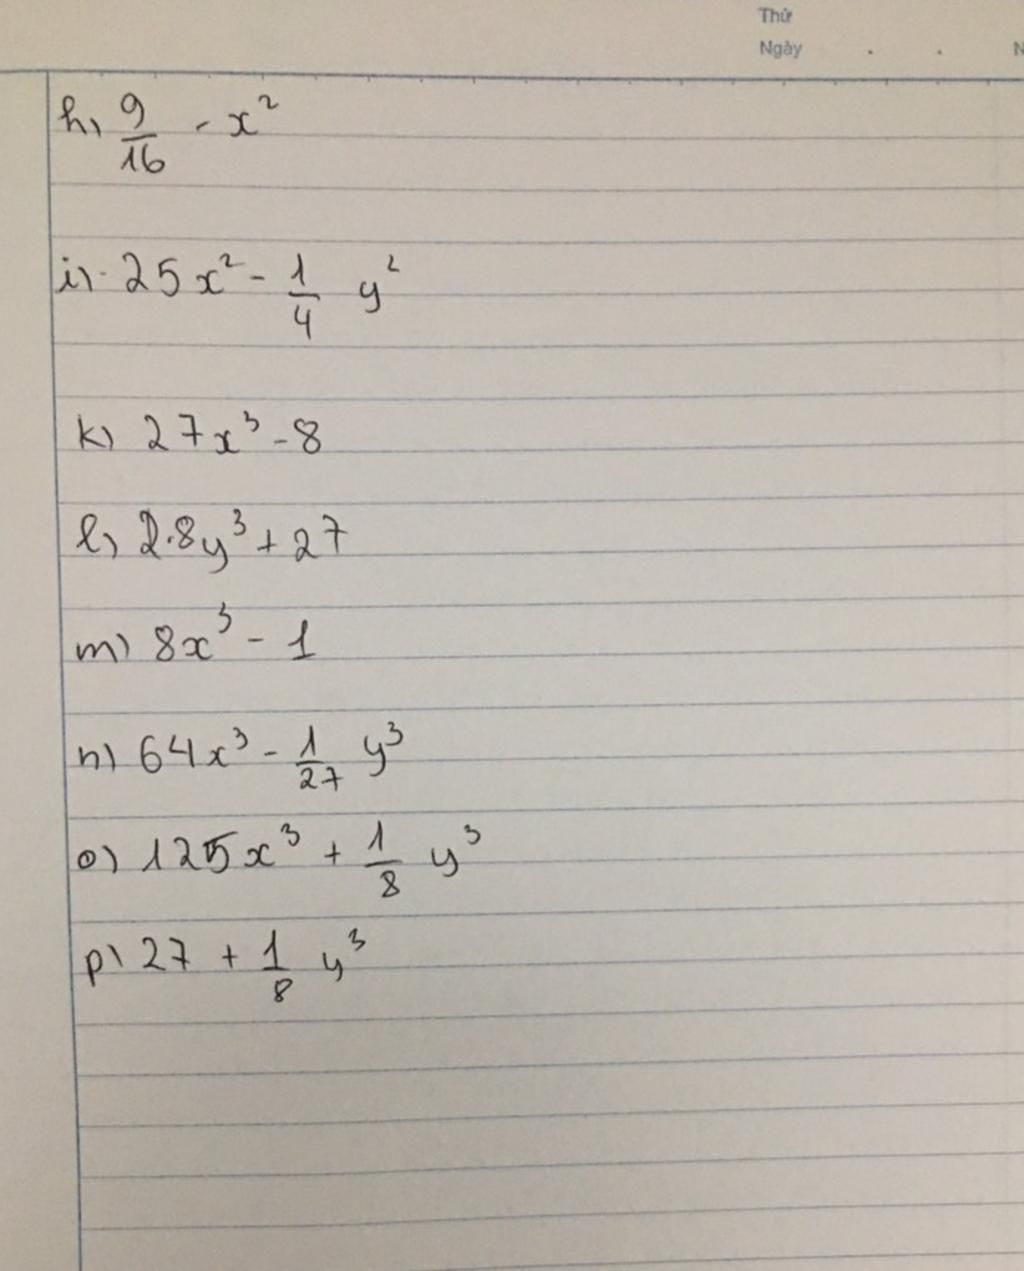 Thứ
Ngày . . N
h, 9/16 - x²
i) 25x² - 1/4 y²
k) 27x³ - 8
l, 2.8y³ + 27
m) 8x³ - 1
n) 64x³ - 1/27 y³
o) 125x³ + 1/8 y³
p) 27 + 1/8 y³